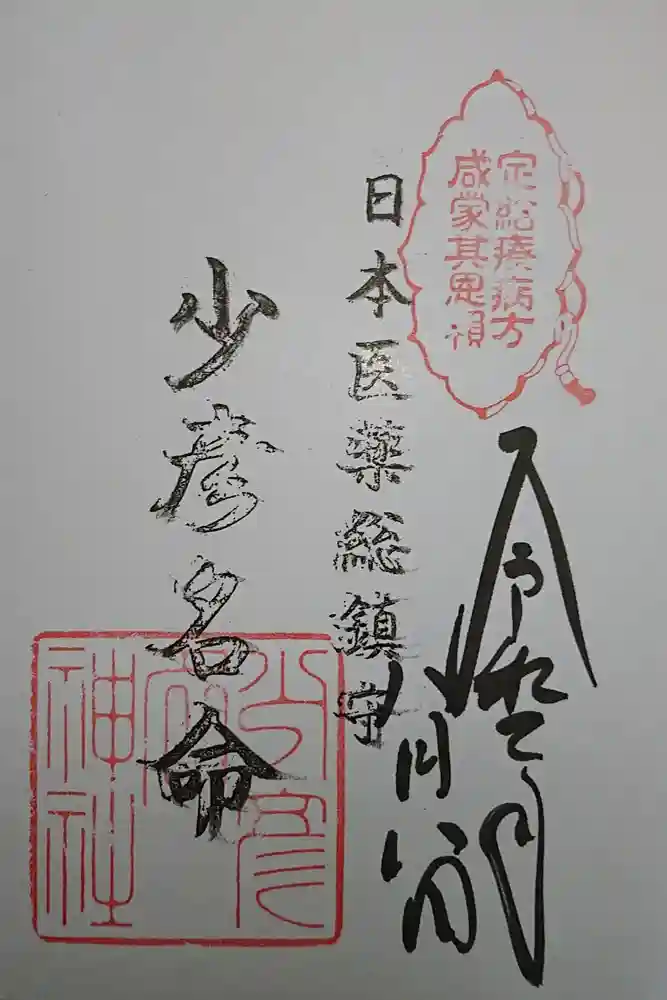 定給療病方
咸蒙其恩頼
日本医薬総鎮守
少彦名命
少彦
名
神社